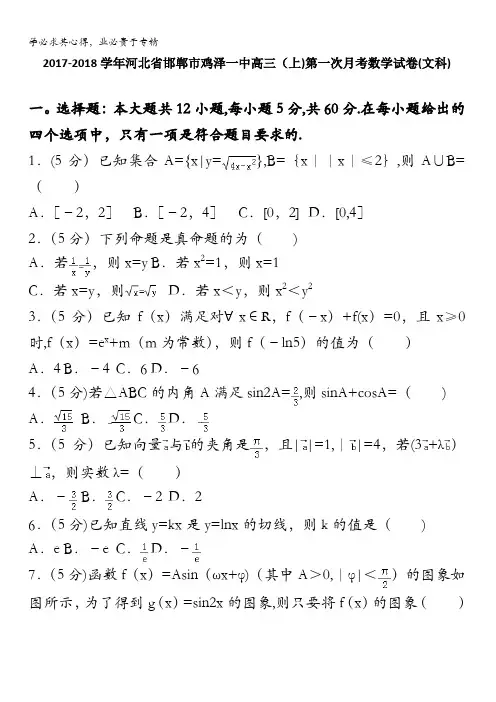 学必求其心得，业必贵于专精
2017-2018学年河北省邯郸市鸡泽一中高三（上)第一次月考数学试卷(文科)
一。选择题：本大题共12小题,每小题5分,共60分.在每小题给出的
四个选项中，只有一项是符合题目要求的.
1．(5分）已知集合A={x|y=√(4x-x²)},B=｛x｜｜x｜≤2｝,则A∪B=
（　　）
A．[﹣2，2］　B．[﹣2，4］　C．[0，2]　D．[0,4］
2．（5分）下列命题是真命题的为（　　)
A．若1/x=1/y，则x=y B．若x²=1，则x=1
C．若x=y，则√x=√y　D．若x＜y，则x²＜y²
3．（5分）已知f（x）满足对∀x∈R，f（﹣x）+f(x）=0，且x≥0
时,f（x）=eˣ+m（m为常数），则f（﹣ln5）的值为（　　）
A．4 B．﹣4 C．6 D．﹣6
4．（5分)若△ABC的内角A满足sin2A=2/3,则sinA+cosA=（　　)
A．√15/3 B．﹣√15/3 C．5/3 D．﹣5/3
5．（5分）已知向量a⃗与b⃗的夹角是π/3，且|a⃗|=1,｜b⃗|=4，若(3a⃗+λb⃗）
⊥a⃗，则实数λ=（　　）
A．﹣3/2 B．3/2 C．﹣2 D．2
6．（5分)已知直线y=kx是y=lnx的切线，则k的值是（　　)
A．e B．﹣e C．1/e D．﹣1/e
7．（5分)函数f（x）=Asin（ωx+φ)（其中A＞0,｜φ|＜π/2）的图象如
图所示，为了得到g（x）=sin2x的图象,则只要将f（x）的图象（　　）